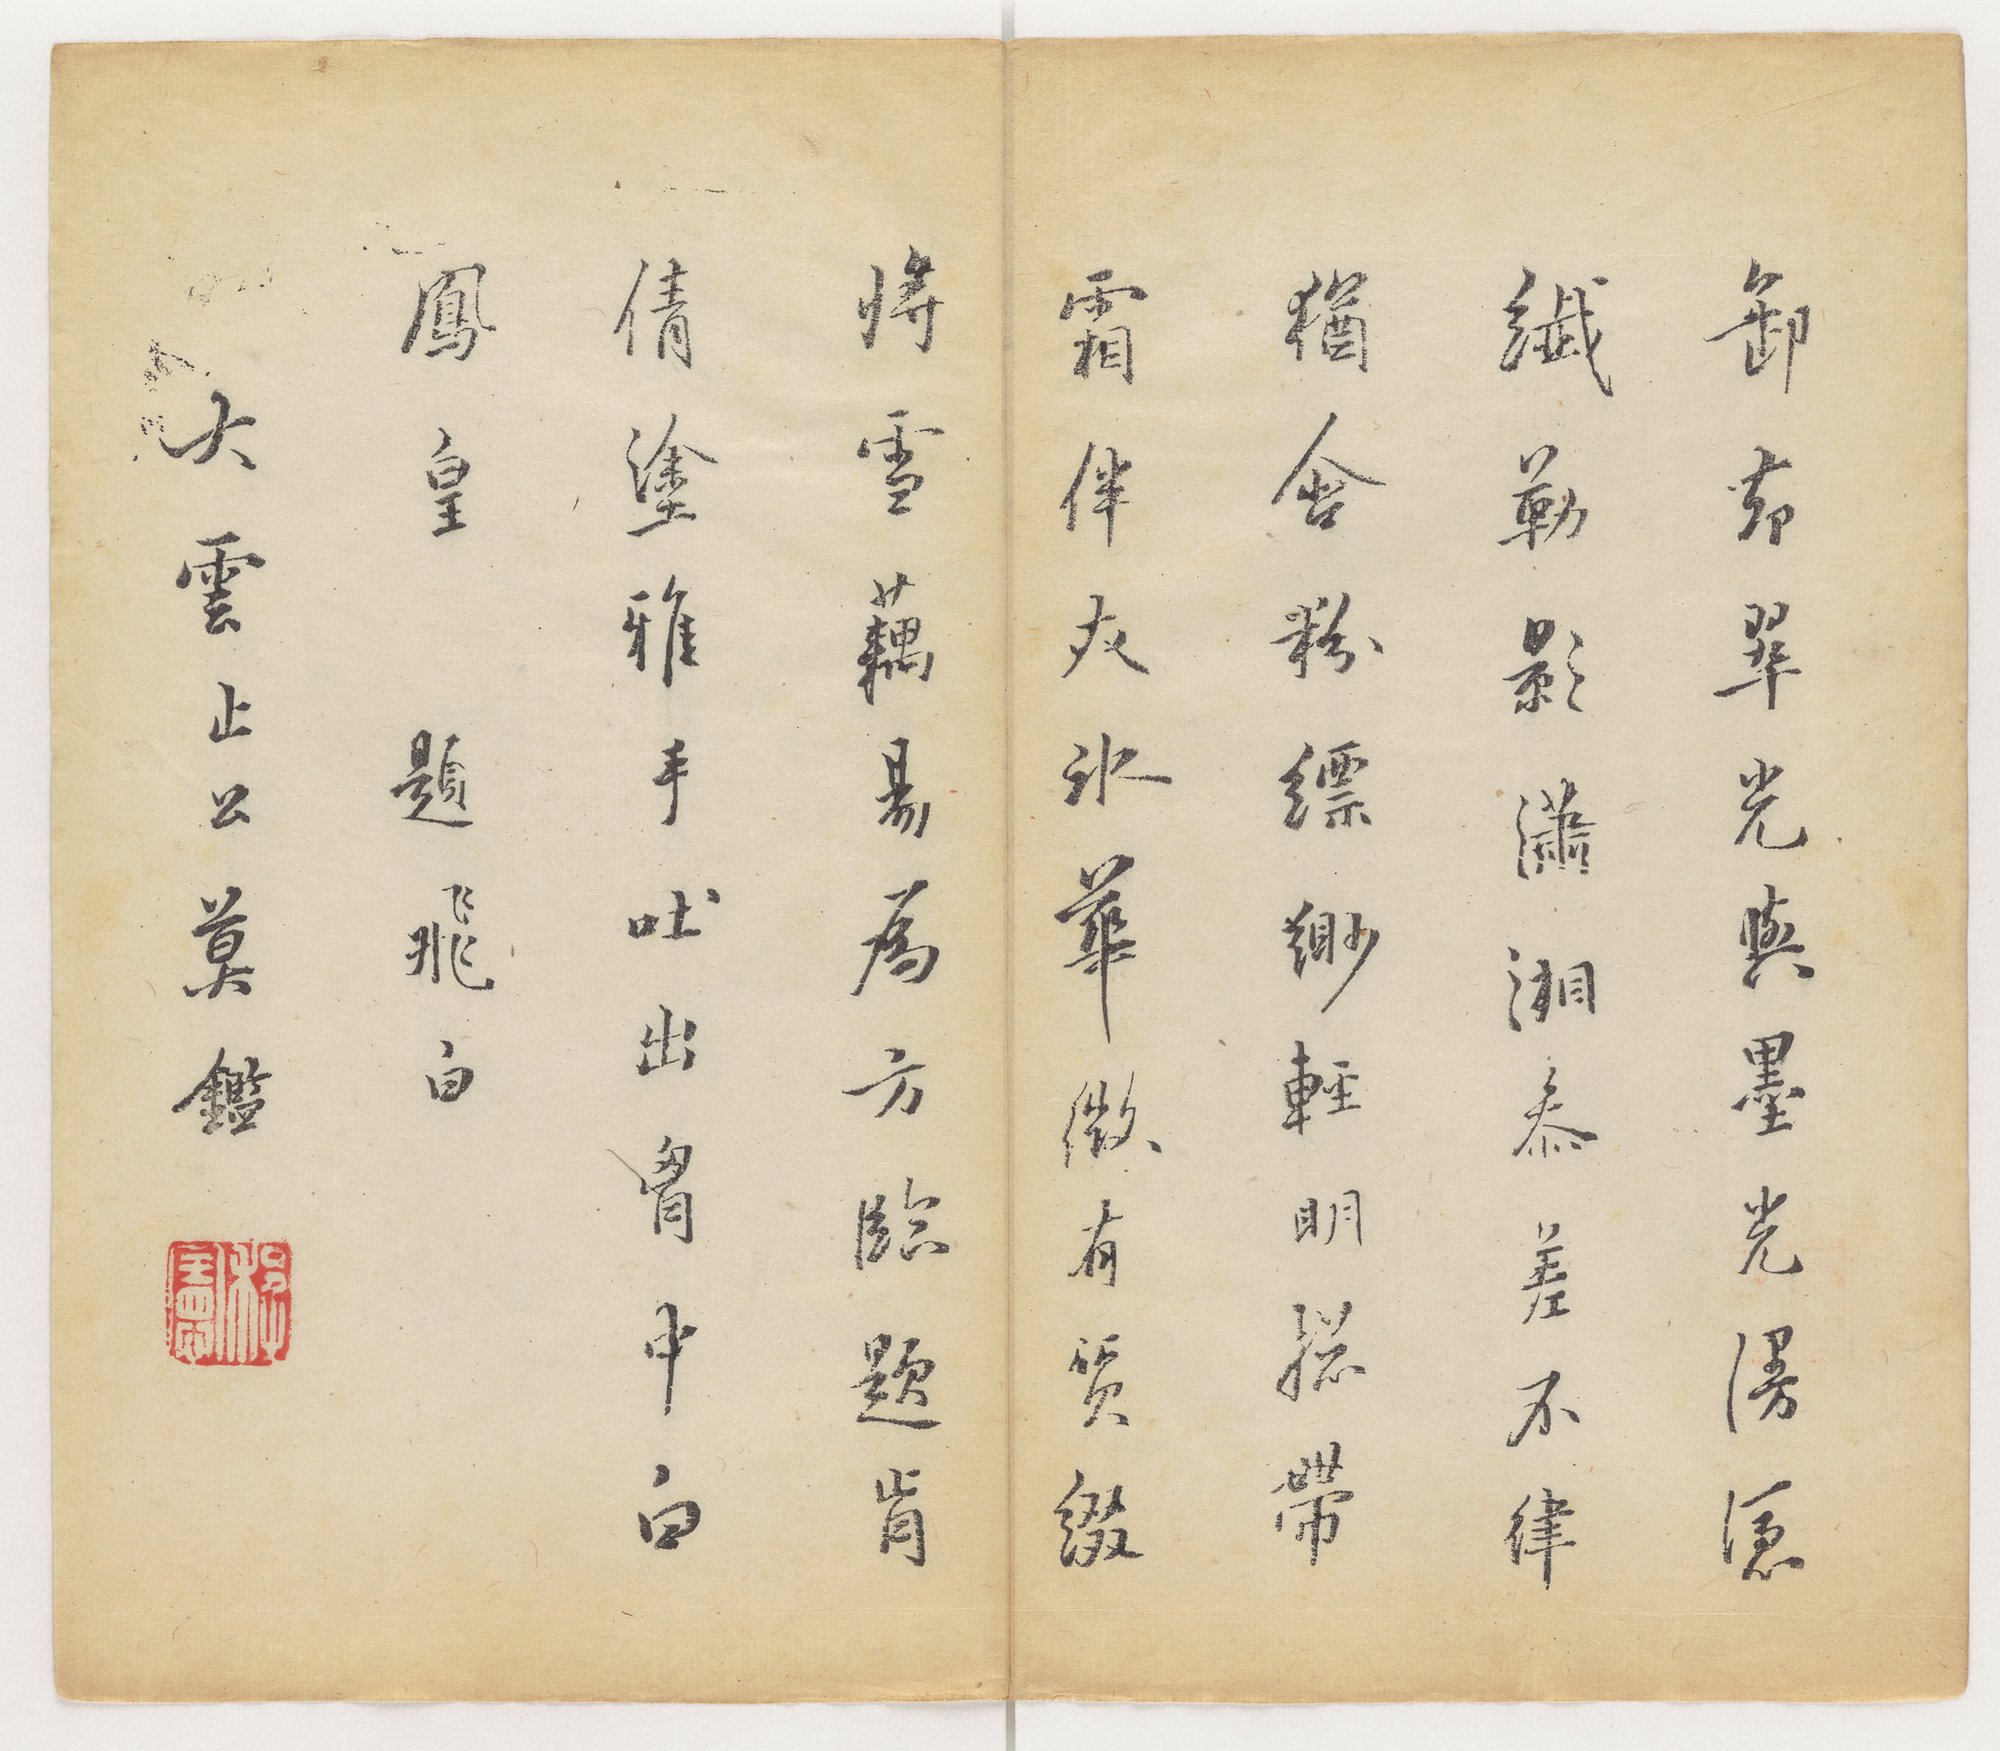 卸却翠光與墨光漫憑
纖勒影瀟湘參差不律
猶含粉縹緲輕明揔帶
霜伴夜氷華微有質綴
將雪藕易為方臨題肯
倩塗雅手吐出胷中白
鳳皇　題飛白
大雲止公莫鑑